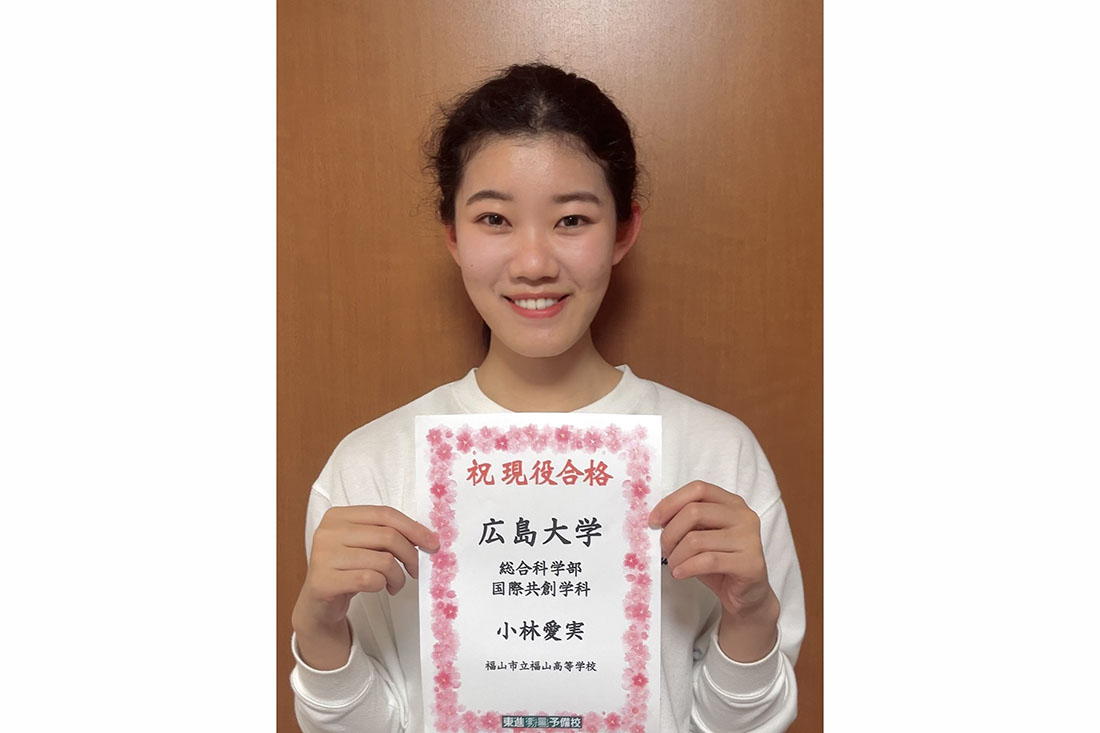 祝 現役合格
広島大学
総合科学部
国際共創学科
小林愛実
福山市立福山高等学校
東進衛星予備校